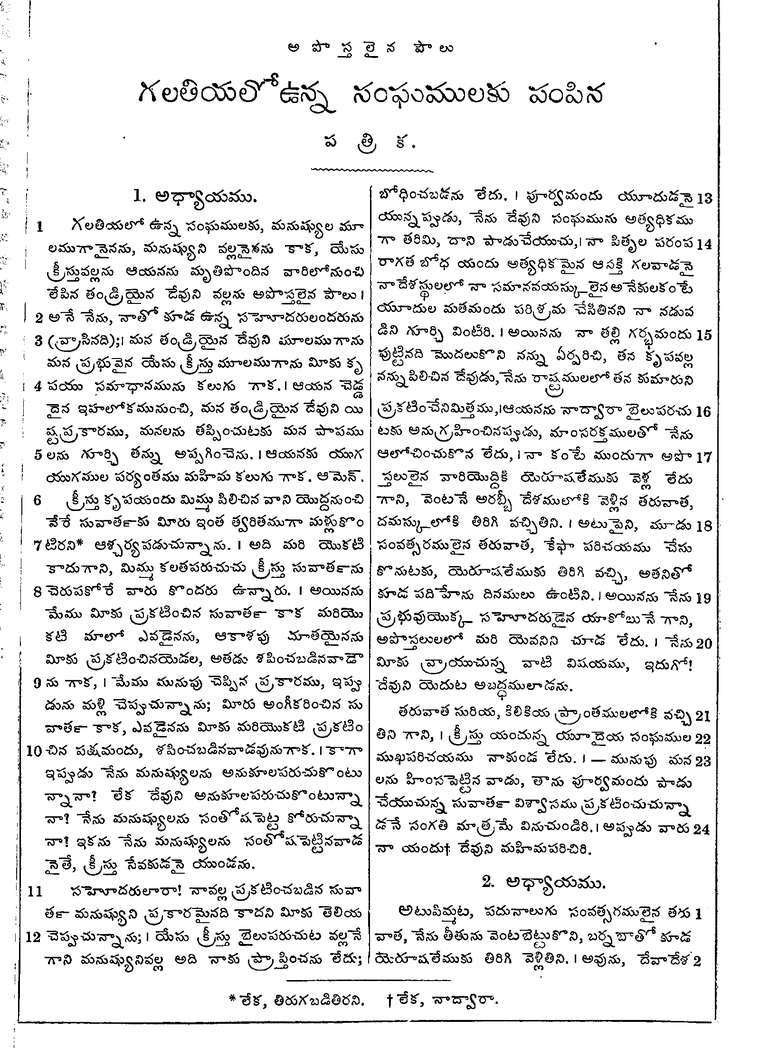 అ పొ స్త లై న పౌ లు
గలతియలో ఉన్న సంఘములకు పంపిన
ప త్రి క.
1. అధ్యాయము.
1 గలతియలో ఉన్న సంఘములకు, మనుష్యుల మూ
లముగానైనను, మనుష్యుని వల్లనైనను కాక, యేసు
క్రీస్తువల్లను ఆయనను మృతిపొందిన వారిలోనుంచి
లేపిన తండ్రియైన దేవుని వల్లను అపొస్తలైన పౌలు।
2 అనే నేను, నాతో కూడ ఉన్న సహోదరులందరును
3 (వ్రాసినది);। మన తండ్రియైన దేవుని మూలముగాను
మన ప్రభువైన యేసు క్రీస్తు మూలముగాను మీకు కృ
4 పయు సమాధానమును కలుగు గాక.। ఆయన చెడ్డ
దైన ఇహలోకమునుంచి, మన తండ్రియైన దేవుని యి
ష్టప్రకారము, మనలను తప్పించుటకు మన పాపము
5 లను గూర్చి తన్ను అప్పగించెను.। ఆయనకు యుగ
యుగముల పర్యంతము మహిమ కలుగు గాక. ఆమెన్.
6 క్రీస్తు కృపయందు మిమ్ము పిలిచిన వాని యొద్దనుంచి
వేరే సువార్తకు మీరు ఇంత త్వరితముగా మళ్లుకొం
7 టిరని* ఆశ్చర్యపడుచున్నాను. । అది మరి యొకటి
కాదుగాని, మిమ్ము కలతపరుచుచు క్రీస్తు సువార్తను
8 చెరుపకోరే వారు కొందరు ఉన్నారు. । అయినను
మేము మీకు ప్రకటించిన సువార్త కాక మరియొ
కటి మాలో ఎవడైనను, ఆకాశపు దూతయైనను
మీకు ప్రకటించినయెడల, అతడు శపించబడినవాడౌ
9 ను గాక, । మేము మునుపు చెప్పిన ప్రకారము, ఇప్పు
డును మళ్లి చెప్పుచున్నాను; మీరు అంగీకరించిన సు
వార్త కాక, ఎవడైనను మీకు మరియొకటి ప్రకటిం
10 చిన పక్షమందు, శపించబడినవాడవునుగాక. । కాగా
ఇప్పుడు నేను మనుష్యులను అనుకూలపరుచుకొంటు
న్నానా? లేక దేవుని అనుకూలపరుచుకొంటున్నా
నా? నేను మనుష్యులను సంతోషపెట్ట కోరుచున్నా
నా! ఇకను నేను మనుష్యులను సంతోషపెట్టినవాడ
నైతే, క్రీస్తు సేవకుడనై యుండను.
11 సహోదరులారా! నావల్ల ప్రకటించబడిన సువా
ర్త మనుష్యుని ప్రకారమైనది కాదని మీకు తెలియ
12 చెప్పుచున్నాను;। యేసు క్రీస్తు బైలుపరుచుట వల్లనే
గాని మనుష్యునివల్ల అది నాకు ప్రాప్తించను లేదు;
బోధించబడను లేదు. । పూర్వమందు యూదుడనై 13
యున్నప్పుడు, నేను దేవుని సంఘమును అత్యధికము
గా తరిమి, దాని పాడుచేయుచు,। నా పితృల పరంప 14
రాగత బోధ యందు అత్యధికమైన ఆసక్తి గలవాడనై
నాదేశస్థులలో నా సమానవయస్కులైన అనేకులకంటే
యూదుల మతమందు పరిశ్రమ చేసితినని నా నడువ
డిని గూర్చి వింటిరి. । అయినను నా తల్లి గర్భమందు 15
పుట్టినది మొదలుకొని నన్ను ఏర్పరిచి, తన కృపవల్ల
నన్నుపిలిచిన దేవుడు,నేను రాష్ట్రములలో తన కుమారుని
ప్రకటించేనిమిత్తము,।ఆయనను నాద్వారా బైలుపరచు 16
టకు అనుగ్రహించినప్పుడు, మాంసరక్తములతో నేను
ఆలోచించుకొన లేదు,। నా కంటే ముందుగా అపొ 17
స్తలులైన వారియొద్దికి యెరూషలేముకు వెళ్ల లేదు
గాని, వెంటనే అరబ్బీ దేశములోకి వెళ్లిన తరువాత,
దమస్కులోకి తిరిగి వచ్చితిని. । అటుపైని, మూడు 18
సంవత్సరములైన తరువాత, కేఫా పరిచయము చేసు
కొనుటకు, యెరూషలేముకు తిరిగి వచ్చి, అతనితో
కూడ పదిహేను దినములు ఉంటిని.। అయినను నేను 19
ప్రభువుయొక్క సహోదరుడైన యాకోబునే గాని,
అపొస్తలులలో మరి యెవనిని చూడ లేదు. । నేను 20
మీకు వ్రాయుచున్న వాటి విషయము, ఇదుగో!
దేవుని యెదుట అబద్ధములాడను.
తరువాత సురియ, కిలికియ ప్రాంతములలోకి వచ్చి 21
తిని గాని, । క్రీస్తు యందున్న యూదైయ సంఘముల 22
ముఖపరిచయము నాకుండ లేదు. । — మునుపు మన 23
లను హింసపెట్టిన వాడు, తాను పూర్వమందు పాడు
చేయుచున్న సువార్త విశ్వాసము ప్రకటించుచున్నా
డనే సంగతి మాత్రమే వినుచుండిరి.। అప్పుడు వారు 24
నా యందు† దేవుని మహిమపరిచిరి.
2. అధ్యాయము.
అటుపిమ్మట, పదునాలుగు సంవత్సరములైన తరు 1
వాత, నేను తీతును వెంటబెట్టుకొని, బర్నబాతో కూడ
యెరూషలేముకు తిరిగి వెళ్లితిని. । అవును, దేవాదేశ 2
* లేక, తిరుగబడితిరని. † లేక, నాద్వారా.